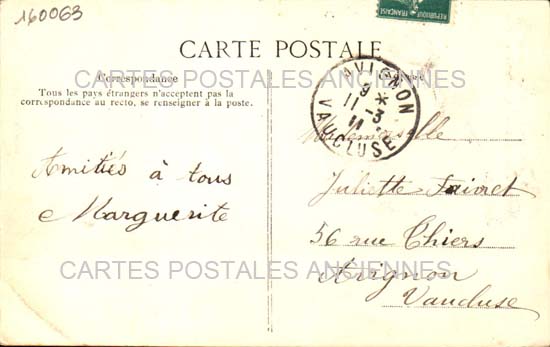 160063
RÉPUBLIQUE FRANÇAISE
CARTE POSTALE
Correspondance
Tous les pays étrangers n'acceptent pas la
correspondance au recto, se renseigner à la poste.
AVIGNON
9 *
11 - 3
11
VAUCLUSE
CARTES POSTALES ANCIENNES
Amitiés à tous
Marguerite
Mademoiselle
Juliette Faivret
56 rue Thiers
Avignon
Vaucluse
CARTES POSTALES ANCIENNES